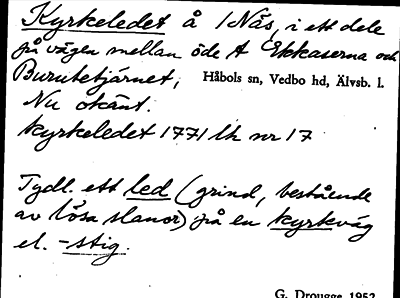 Kyrkeledet å 1 Näs, i ett dele
på vägen mellan öde t Ekkaserna och
Burutetjärnet, Håbols sn, Vedbo hd, Älvsb. l.
Nu okänt.
Kyrkeledet 1771 lh nr 17
Tydl. ett led (grind, bestående
av lösa slanor) på en kyrkväg
el. -stig.
G. Drougge 1952